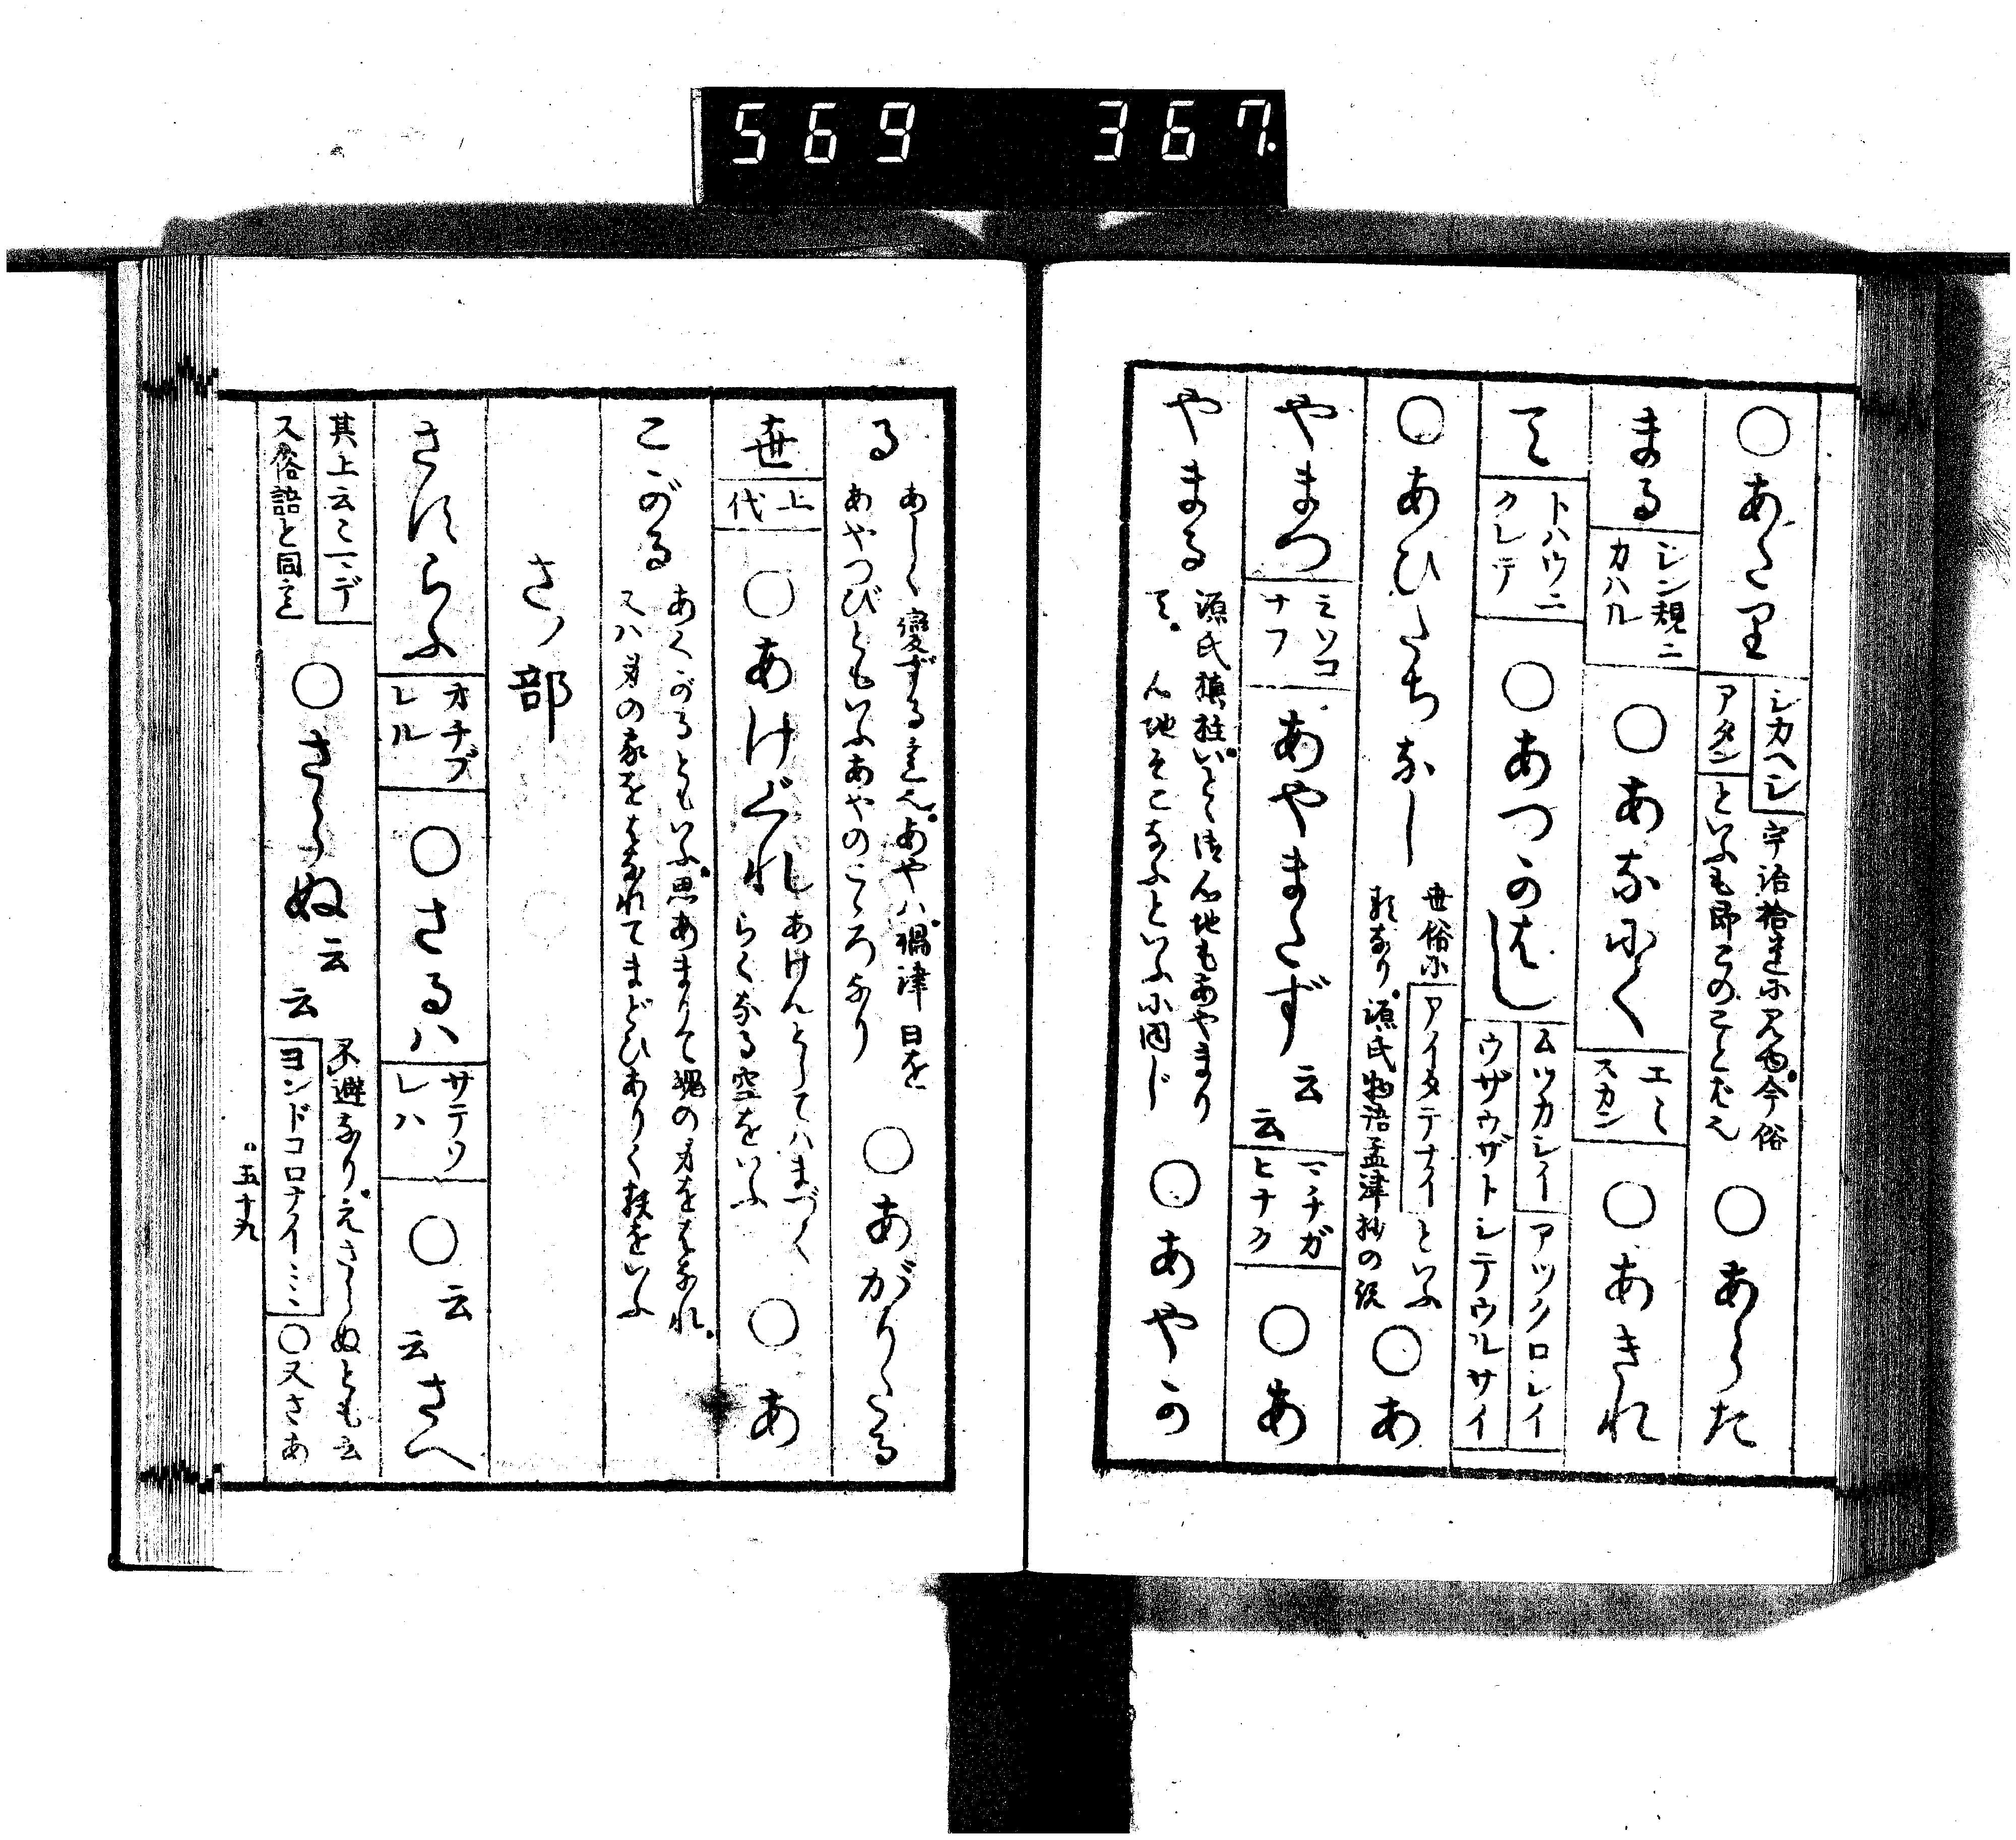 569 367.
○あたり シカヘシ アタン 宇治拾遺に見ゆ今俗
といふも即このことなり ○あらた
まる シン規ニ カハル ○あなにく エヽ スカン ○あきれ
て トハウニ クレテ ○あつかはし ムツカシイ アツクロシイ ウザウザトシテウルサイ
○あひたちなし 世俗に アイタテナイ といふ
類なり源氏物語孟津抄の説 ○あ
やまつ ミソコ ナフ あやまたず 云云 マチガ ヒナク ○あ
やまる 源氏槙柱いとゝ御心地もあやまり
て 心地そこなふといふに同じ ○あやか
る あしく變ずる意也あやハ禍津日を
あやつびともいふあやのこゝろなり ○あがりたる
世 上代 ○あけぐれ あけんとしてハまづく
らくなる空をいふ ○あ
こがる あくがるともいふ思あまりて魂の身をはなれ
又ハ身の家をはなれてまどひありく躰をいふ
さノ部
さすらふ オチブ レル ○さるハ サテソ レハ ○云云さへ
其上云々マデ
又俗語と同意 ○さらぬ云云 不避なりえさらぬとも云
ヨンドコロナイ ○又さあ
五十九